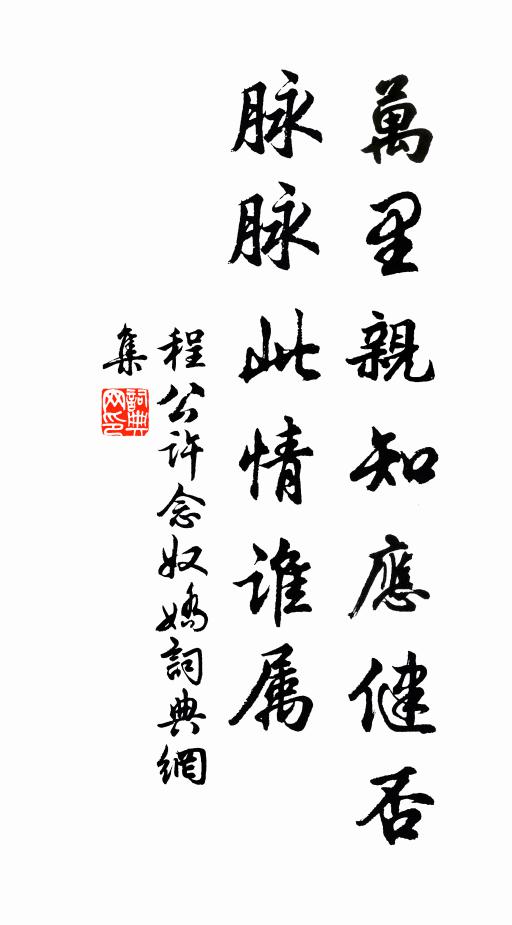 萬里親知應健否
脉脉此情誰属
程公許念奴嬌詞典網
集
詞典網印